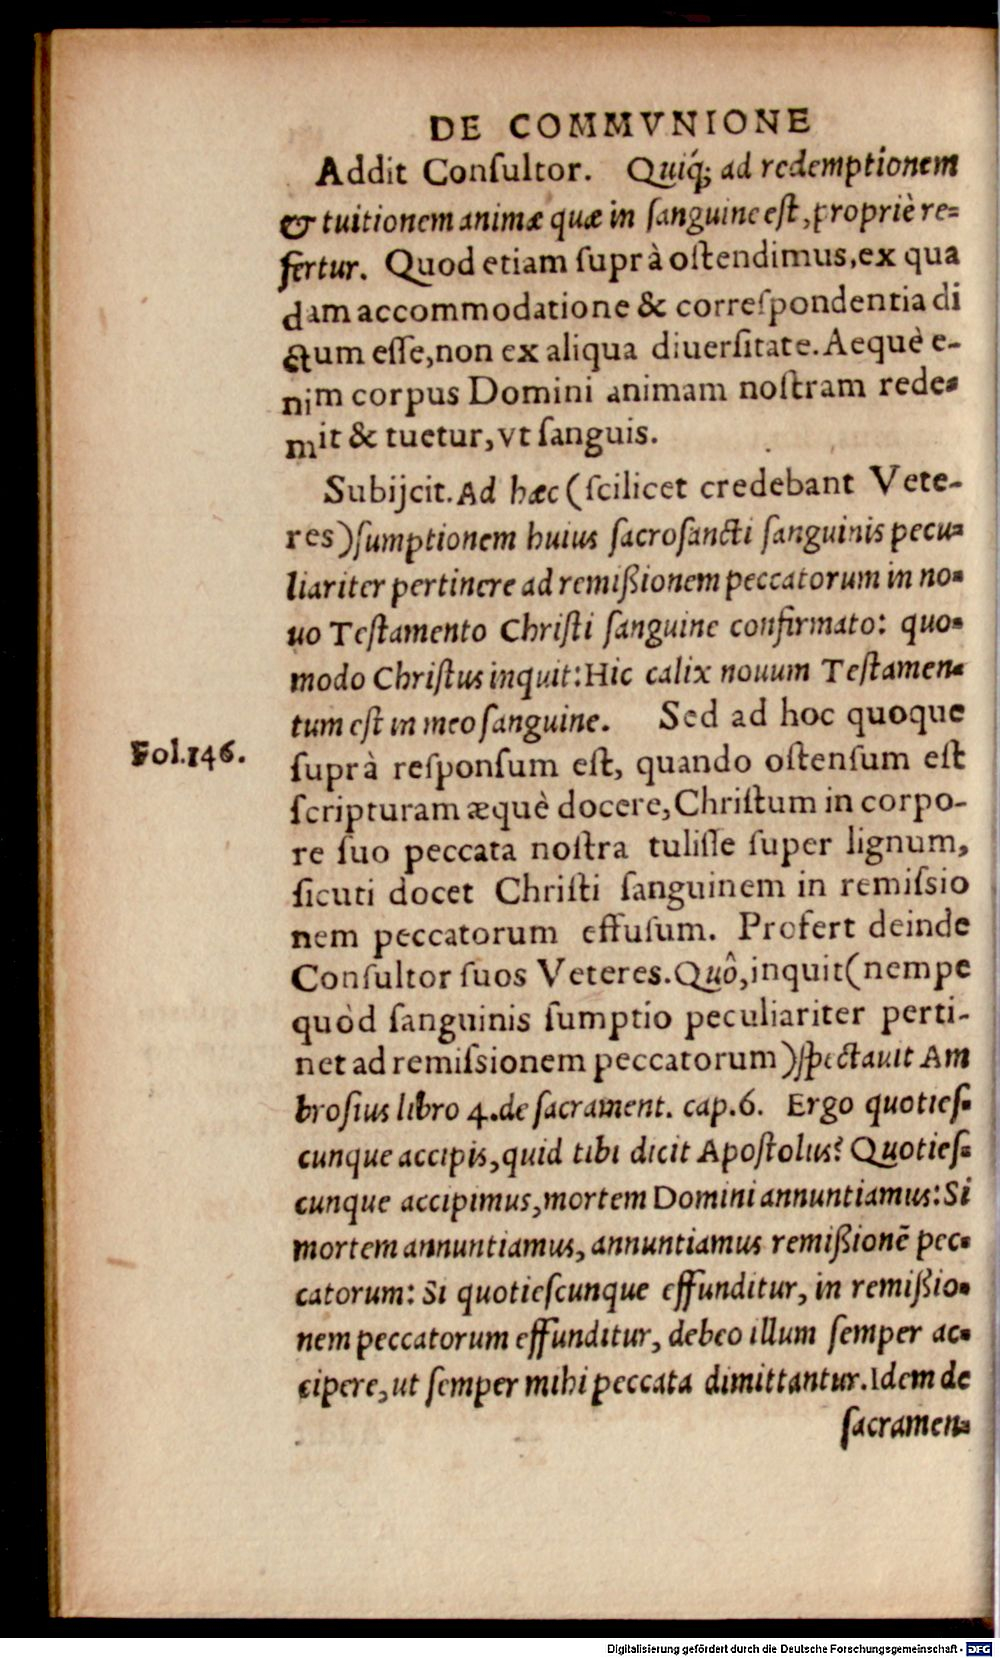 DE COMMVNIONE
Addit Conſultor. Quiq́; ad redemptionem
& tuitionem animæ quæ in ſanguine eſt, propriè re-
fertur. Quod etiam ſuprà oſtendimus, ex qua
dam accommodatione & correſpondentia di
ctum eſſe, non ex aliqua diuerſitate. Aequè e-
nim corpus Domini animam noſtram rede-
mit & tuetur, vt ſanguis.
Subijcit. Ad hæc (ſcilicet credebant Vete-
res) ſumptionem huius ſacroſancti ſanguinis pecu-
liariter pertinere ad remißionem peccatorum in no-
uo Teſtamento Chriſti ſanguine confirmato: quo-
modo Chriſtus inquit: Hic calix nouum Teſtamen-
tum eſt in meo ſanguine. Sed ad hoc quoque
Fol. 146.
ſuprà reſponſum eſt, quando oſtenſum eſt
ſcripturam æquè docere, Chriſtum in corpo-
re ſuo peccata noſtra tuliſſe ſuper lignum,
ſicuti docet Chriſti ſanguinem in remiſsio
nem peccatorum effuſum. Profert deinde
Conſultor ſuos Veteres. Quô, inquit (nempe
quòd ſanguinis ſumptio peculiariter perti-
net ad remiſsionem peccatorum) ſpectauit Am
broſius libro 4. de ſacrament. cap. 6. Ergo quotieſ-
cunque accipis, quid tibi dicit Apoſtolus? Quotieſ-
cunque accipimus, mortem Domini annuntiamus: Si
mortem annuntiamus, annuntiamus remißionē pec-
catorum: Si quotieſcunque effunditur, in remißio-
nem peccatorum effunditur, debeo illum ſemper ac-
cipere, ut ſemper mihi peccata dimittantur. Idem de
ſacramen-
Digitalisierung gefördert durch die Deutsche Forschungsgemeinschaft - DFG